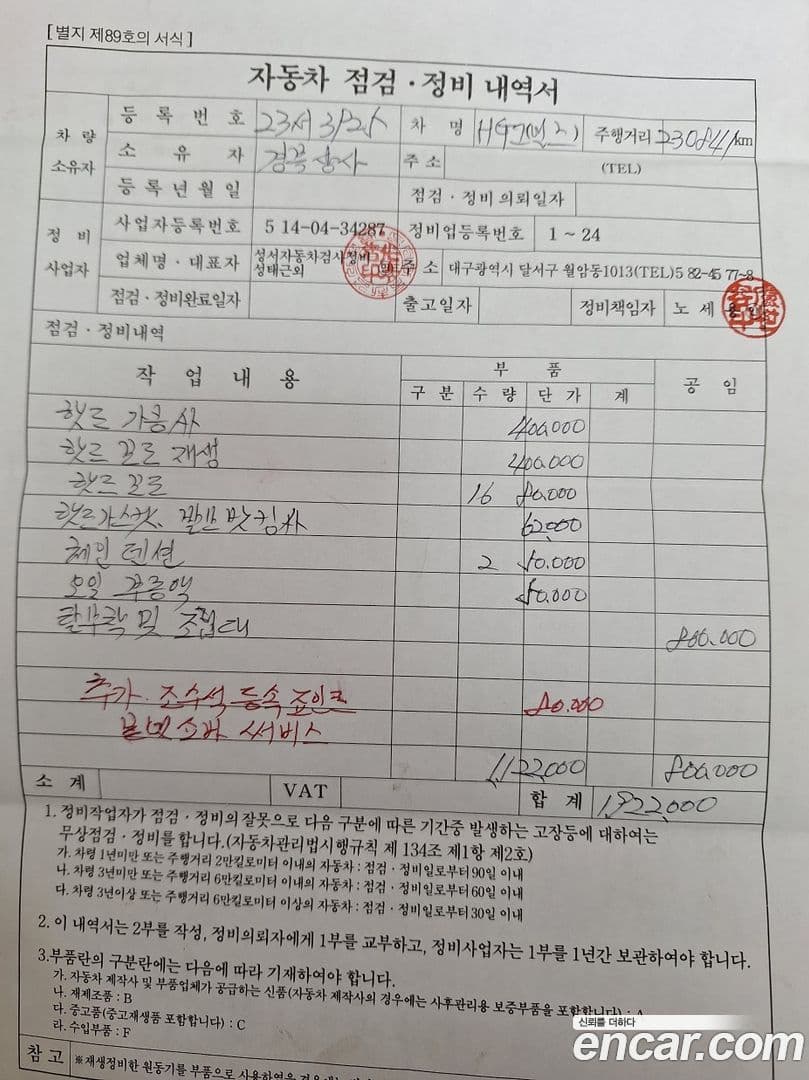 [별지 제89호의 서식]
자동차 점검 · 정비 내역서
차량 소유자
등록번호 차명 HG 주행거리 230841 km
소유자 경북상사 주소 (TEL)
등록년월일 점검 · 정비 의뢰일자
정비 사업자
사업자등록번호 5 14-04-34287 정비업등록번호 1 ~ 24
업체명 · 대표자 성서자동차검사정비 성태근외 인 주소 대구광역시 달서구 월암동1013(TEL)5 82-45 77~8
점검 · 정비완료일자 출고일자 정비책임자 노 세 용 인
점검 · 정비내역
작업내용 부품 공임
구분 수량 단가 계
햇드 가공사 400,000
햇드 뽀도 재생 400,000
햇드 뽀도 16 80,000
햇드가스켓, 62,000
체인 텐션 2 50,000
오일 부동액 50,000
탈부착 및 조립대 800,000
추가. 조수석 등속 죠인트 80,000
본넷쇼바 써비스
1,122,000 800,000
소계 VAT 합계 1,922,000
1. 정비작업자가 점검 · 정비의 잘못으로 다음 구분에 따른 기간중 발생하는 고장등에 대하여는
무상점검 · 정비를 합니다.(자동차관리법시행규칙 제 134조 제1항 제2호)
가. 차령 1년미만 또는 주행거리 2만킬로미터 이내의 자동차 : 점검 · 정비일로부터 90일 이내
나. 차령 3년미만 또는 주행거리 6만킬로미터 이내의 자동차 : 점검 · 정비일로부터 60일 이내
다. 차령 3년이상 또는 주행거리 6만킬로미터 이상의 자동차 : 점검 · 정비일로부터 30일 이내
2. 이 내역서는 2부를 작성, 정비의뢰자에게 1부를 교부하고, 정비사업자는 1부를 1년간 보관하여야 합니다.
3.부품란의 구분란에는 다음에 따라 기재하여야 합니다.
가. 자동차 제작사 및 부품업체가 공급하는 신품(자동차 제작사의 경우에는 사후관리용 보증부품을 포함합니다) : A
나. 재제조품 : B
다. 중고품(중고재생품 포함합니다) : C
라. 수입부품 : F
참고 ※재생정비한 원동기를 부품으로 사용하였을 경우에는
신뢰를 더하다
encar.com